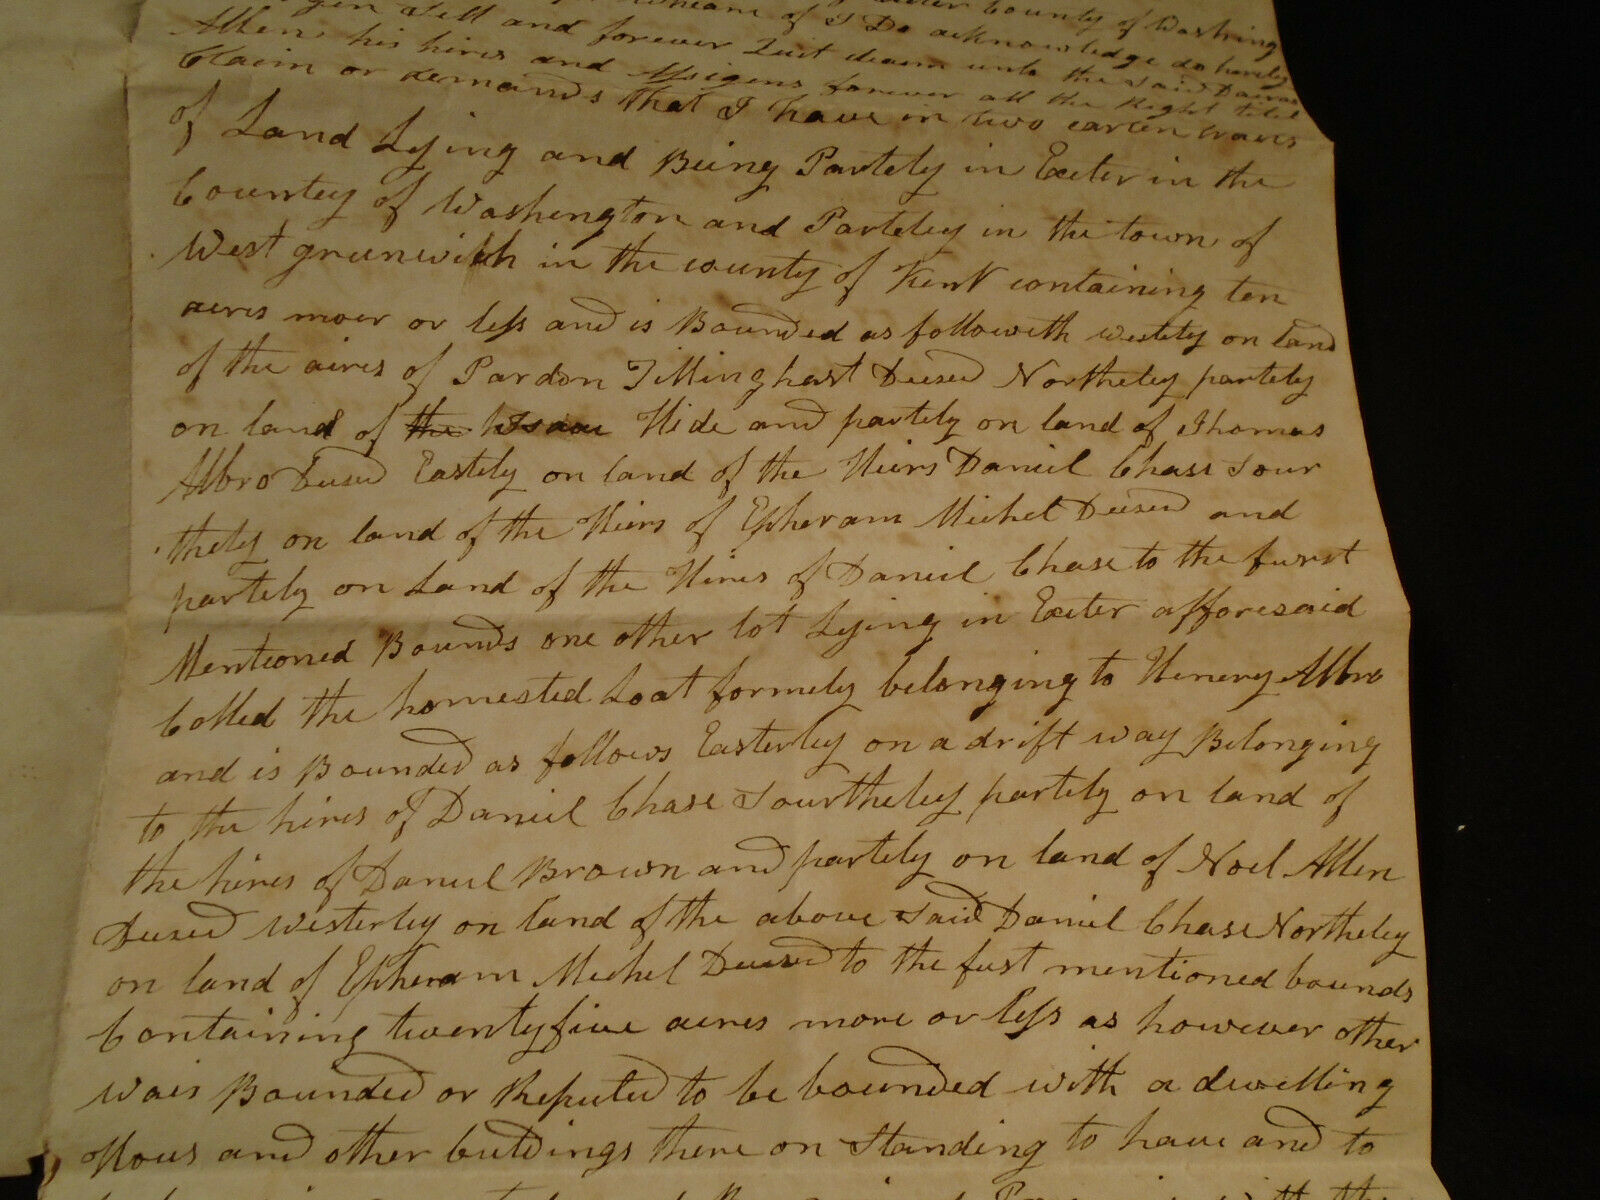 wheare of I Do acknowledge do hereby
Sell and forever Quit claim unto the said
Allen his hires and Assigens forever all the Right titel
Claim or demands that I have in two carten tracts
of Land Lying and Being Partely in Exeter in the
Countey of Washington and Parteley in the town of
West greenwich in the county of Kent containing ten
acres moer or less and is Bounded as followith westely on land
of the aires of Pardon Tillinghast Deesed Northeley partely
on land of the Isaac Hide and partely on land of Thomas
Albro Deesed Eastely on land of the Heirs Daniel Chase Sour
thely on land of the Heirs of Epheram Michel Deesed and
partely on Land of the Hires of Daniel Chase to the furst
Mentioned Bounds one other lot Lying in Exeter afforesaid
Colled the homested Loat formely belonging to Henery Albro
and is Bounded as follows Easterley on a drift way Belonging
to the hires of Daniel Chase Sourtheley partely on land of
the hires of Daniel Brown and partely on land of Noel Allen
Deesed westerley on land of the above said Daniel Chase Northeley
on land of Epheram Michel Deesed to the fust mentioned bounds
Containing twenty five acres more or less as however other
wais Bounded or Reputed to be bounded with a dwelling
Hous and other buildings there on Standing to have and to